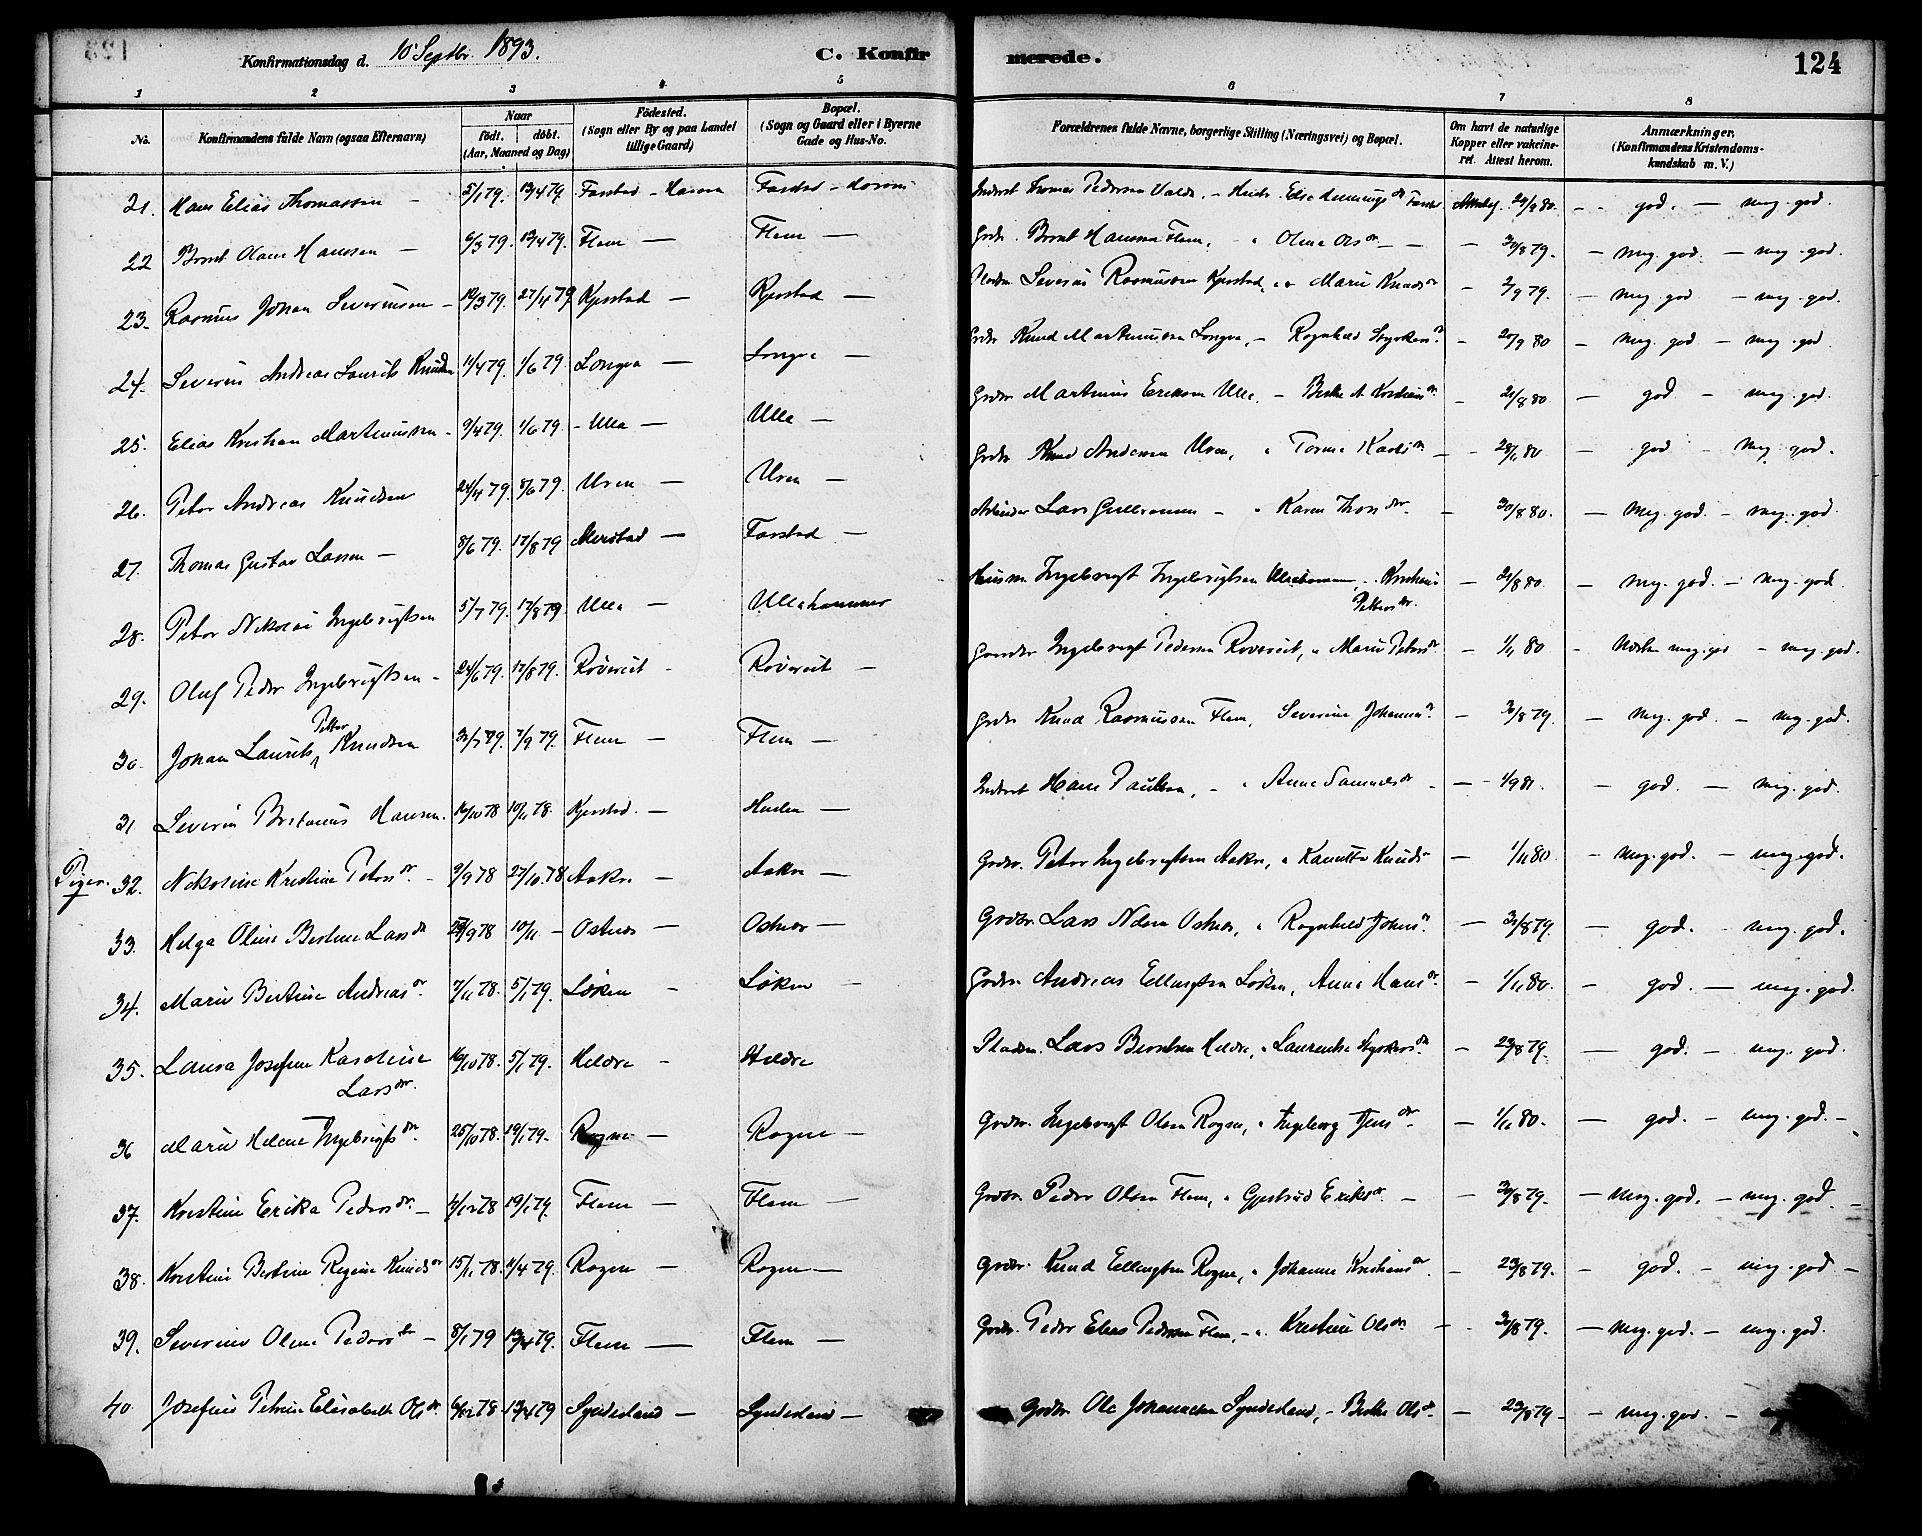 Konfirmationsdag d. 10 Septbr. 1893.
C. Konfir
merede.
124
1 2 3 4 5 6 7 8
No.
Konfirmandens fulde Navn (ogsaa Efternavn)
Naar
födt. döbt.
(Aar, Maaned og Dag)
Födested.
(Sogn eller By og paa Landet
tillige Gaard)
Bopæl.
(Sogn og Gaard eller i Byerne
Gade og Hus-No.
Forældrenes fulde Navne, borgerlige Stilling (Næringsvei) og Bopæl.
Om havt de naturlige
Kopper eller vakcine-
ret. Attest herom.
Anmærkninger.
(Konfirmandens Kristendoms-
kundskab m. V.)
21. Hans Elias Thomassen - 5/1 79. 13/4 79. Farstad - Farstad - Thomas Pedersen - 20/9 80. - god. - meg. god.
22 Bernt Olaus Hanssen - 6/3 79. 13/4 79. Flem - Flem - Grdbr. Bernt Hansen Flem, - Oline Olsdr - 30/8 79. - meg. god. - meg. god.
23. Rasmus Johan Severinsen - 10/3 79. 27/4 79 Kjerstad - Kjerstad - Severin Rasmussen Kjerstad, Marie Knudsdr - 2/9 79. - meg. god - meg. god.
24. Severin Andreas Laurits Knudsen 11/4 79. 1/6 79. Longva - Longva - Grdbr Knud Martinussen Longva, - Ragnhild - 20/9 80 - meg. god - meg. god.
25. Elias Kristian Martinussen - 9/4 79. 1/6 79. - Ulla - Ulla - Grdbr. Martinus Eriksen Ulla. - 21/8 80 - god - meg. god.
26. Peter Andreas Knudsen 24/4 79. 8/6 79. Uren - Uren - Grdbr Knud Andersen Uren, - 28/1 80 - god - meg. god.
27. Thomas Gustav Larsen - 8/6 79. 17/8 79 - Farstad - Arbeider Lars - Karen - 30/8 80. - meg. god. - meg. god.
28. Peter Nikolai Ingebrigtsen 5/7 79. 17/8 79 Ulla - Ullahammer Ingebrigt Ingebrigtsen Ullahammer, Kristine - 21/8 80. - meg. god. - meg. god.
Petersdr.
29. Oluf Peder Ingebrigtsen - 24/6 79. 17/8 79. Röversit - Röversit - Ingebrigt Pedersen Röversit, Marie Petersdr - 1/11 80 - meg. god - meg. god.
Petter
30. Johan Laurits Knudsen 7/9 79. Flem - Flem - Grdbr Knud Rasmussen Flem, Severine - 30/8 79. - meg. god. - meg. god.
31 Severin Hansen. 16/10 78 10/11 78. Kjerstad. - Hans Paulsen, - Anne Samuelsdr - 1/9 81. - god. - meg. god.
Piger. 32. Nikoline Kristine Petersdr. - 9/9 78 27/10.78 Aakre - Aakre - Grdbr. Peter Ingebrigtsen Aakre, Knuds - 1/11 80. - meg. god. - meg. god.
33. Helga Oline Bertine Larsdr 10/11 - Ostnes - Ostnes - Grdbr. Lars Ostnes, Ragnhild - 31/8 79. - god. - meg. god.
34. Marie Bertine Andreasdr. 7/11 78. 5/1 79. Löken - Löken - Grdbr. Andreas Ellingsen Löken, Anne Hansdr. - 1/11 80. - god. - meg. god.
35. Laura Josefine Karoline 16/10 78. 5/1 79. Heldre - Heldre Lars Berntsen Heldre, Laurentse - 23/8 79. - god. - meg. god.
Larsdr.
36 Marie Helene Ingebrigtsdr. 25/10 78. 19/1 79. Rogne - Rogne - Grdbr. Ingebrigt Olsen Rogne, Ingeborg Jensdr. - 1/11 80. - god. - meg. god. -
37. Kristine Erika Pedersdr. - 4/12 78 19/1 79. Flem - Flem - Grdbr. Peder Olsen Flem, Gjertrud Eriksdr. - 30/8 79. - meg. god. - meg. god. -
38. Kristine Bertine Regine Knudsdr 15/11 78. 11/4 79. Rogne - Rogne - Grdbr. Knud Ellingsen Rogne, Johanne Kristiansdr. - 23/8 79. - god. - meg. god -
39. Severine Oline Pedersdr - 8/1 79 13/4 79. Flem - Flem - Grdbr. Peder Elias Pedersen Flem, - Kristine Olsdr. - 30/8 79. - meg. god. - meg. god.
40 Josefine Petrine Elisabeth Olsdr. 6/12 78 13/4 79 Synderland - Synderland - Grdbr Ole Johannesen Synderland, - Berthe Olsdr. - 23/8 79 - - meg. god. -